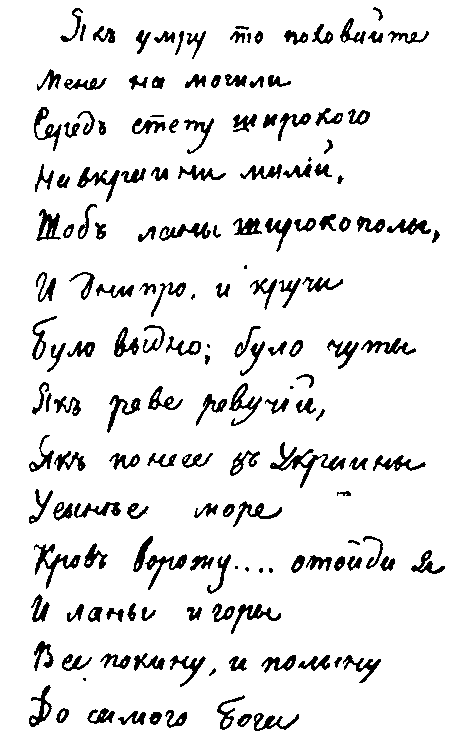 Якъ умру то поховайте
Мене на могили
Середъ степу широкого
На вкраини милій,
Щобъ ланы широкополы,
И Днипро, и кручи
Було выдно; було чуты
Якъ реве ревучій,
Якъ понесе въ Украины
У сынѣе море
Кровъ ворожу.... отойди я
И ланы и горы
Все покину, и полыну
До самого Бога